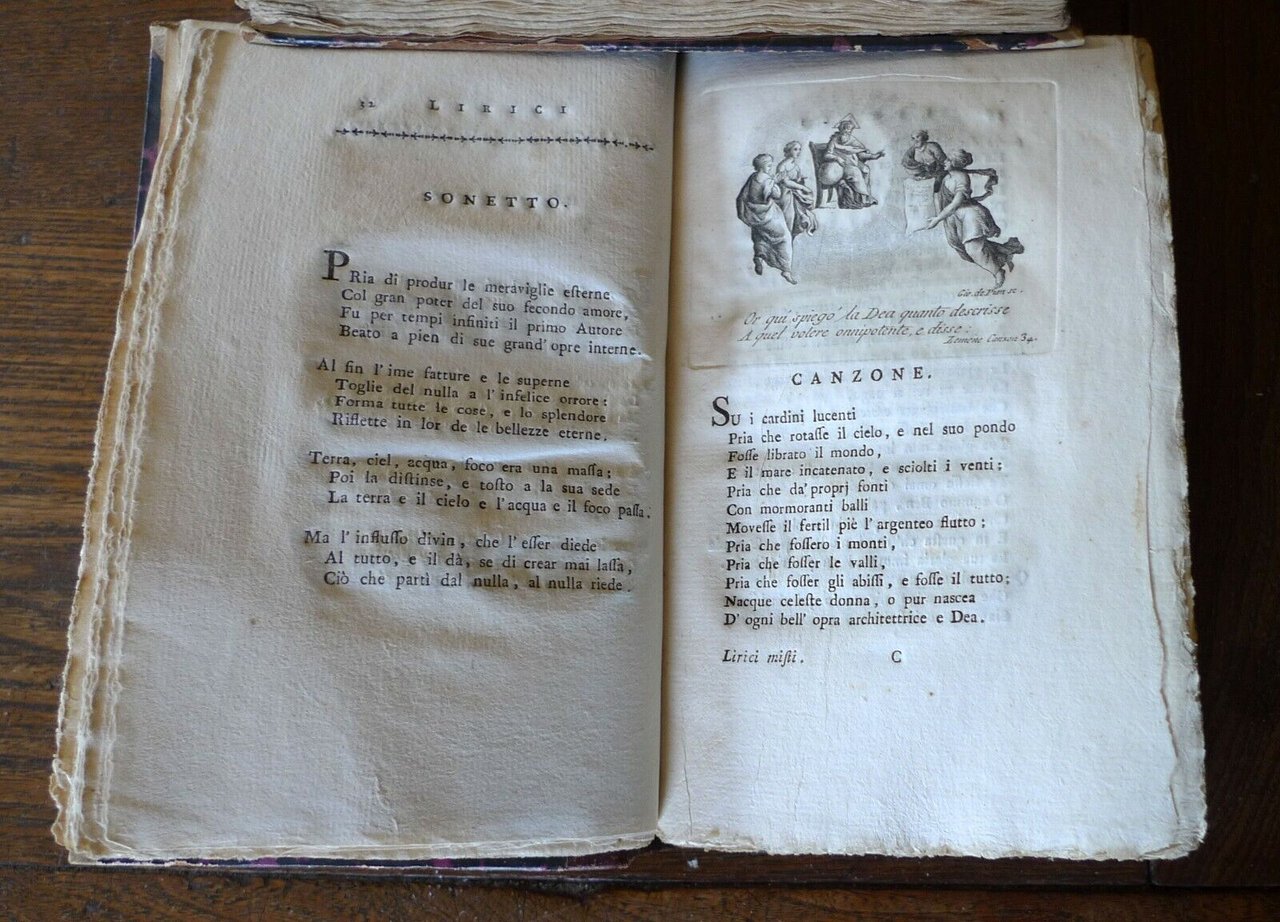 32 LIRICI
SONETTO.
PRia di produr le meraviglie eſterne
Col gran poter del suo fecondo amore,
Fu per tempi infiniti il primo Autore
Beato a pien di sue grand' opre interne.
Al fin l'ime fatture e le superne
Toglie del nulla a l'infelice orrore:
Forma tutte le cose, e lo splendore
Riflette in lor de le bellezze eterne.
Terra, ciel, acqua, foco era una maſſa;
Poi la diſtinse, e toſto a la sua sede
La terra e il cielo e l'acqua e il foco paſſa.
Ma l'influſſo divin, che l'eſſer diede
Al tutto, e il dà, se di crear mai laſſa,
Ciò che partì dal nulla, al nulla riede.
Gio. de Pian sc.
Or qui spiegò la Dea quanto descrisse
A quel volere onnipotente, e disse:
Lemene Canzon 34.
CANZONE.
SU i cardini lucenti
Pria che rotaſſe il cielo, e nel suo pondo
Foſſe librato il mondo,
E il mare incatenato, e sciolti i venti;
Pria che da' proprj fonti
Con mormoranti balli
Moveſſe il fertil piè l'argenteo flutto;
Pria che foſſero i monti,
Pria che foſſer le valli,
Pria che foſſer gli abiſſi, e foſſe il tutto;
Nacque celeſte donna, o pur nascea
D'ogni bell' opra architettrice e Dea.
Lirici miſti. C